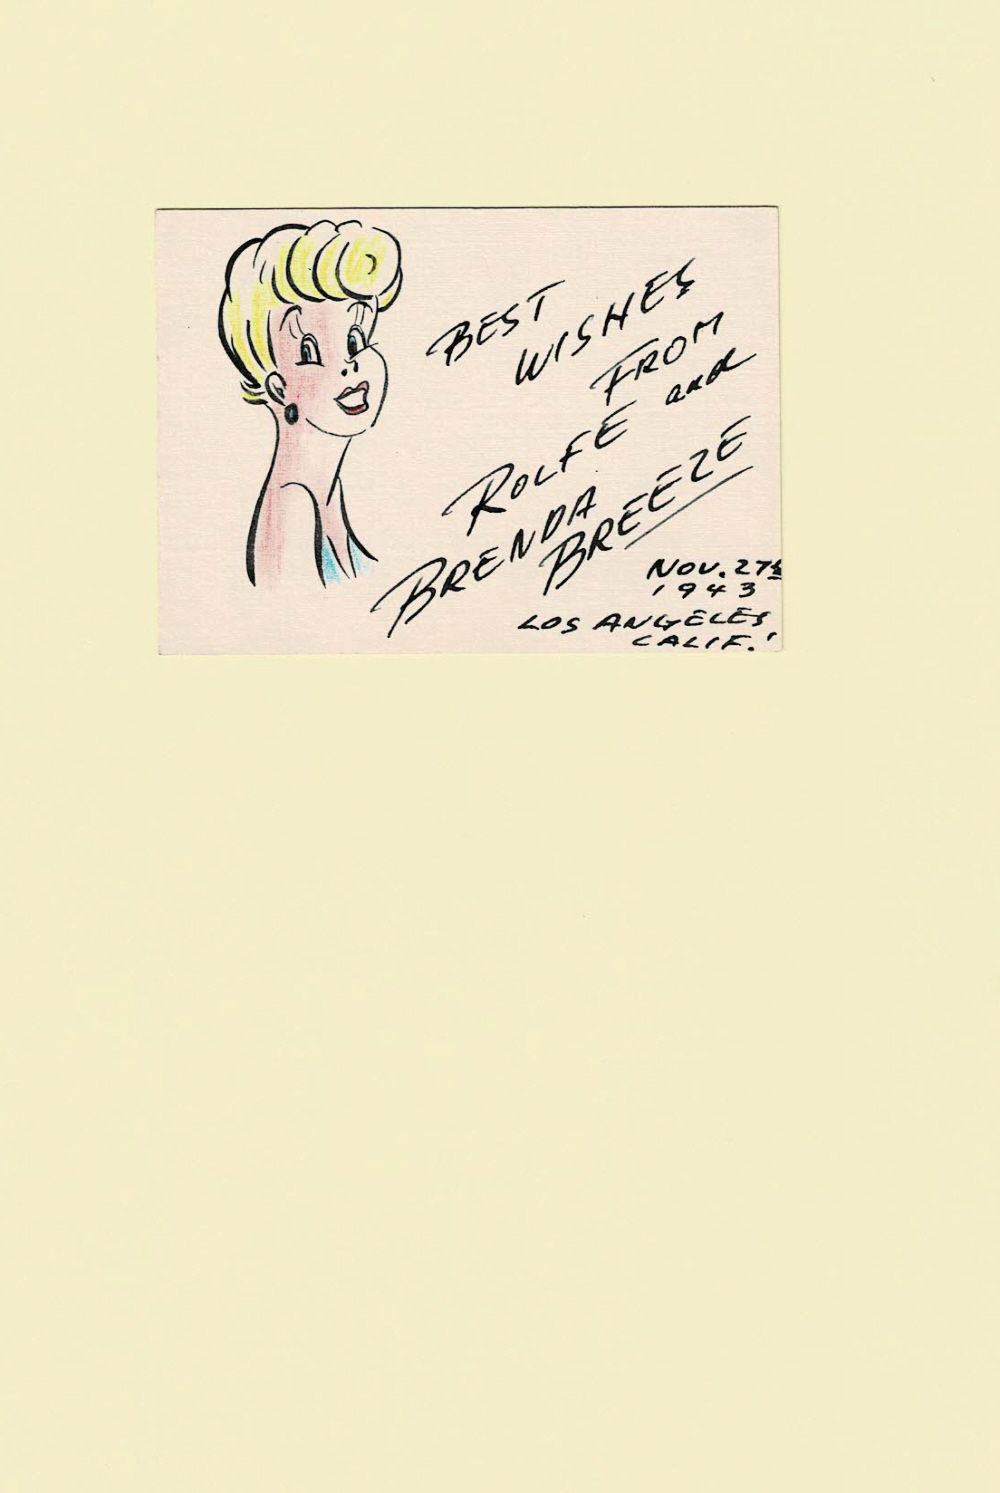 BEST
WISHES
FROM
ROLFE and
BRENDA
BREEZE
NOV. 27th
1943
LOS ANGELES
CALIF.'